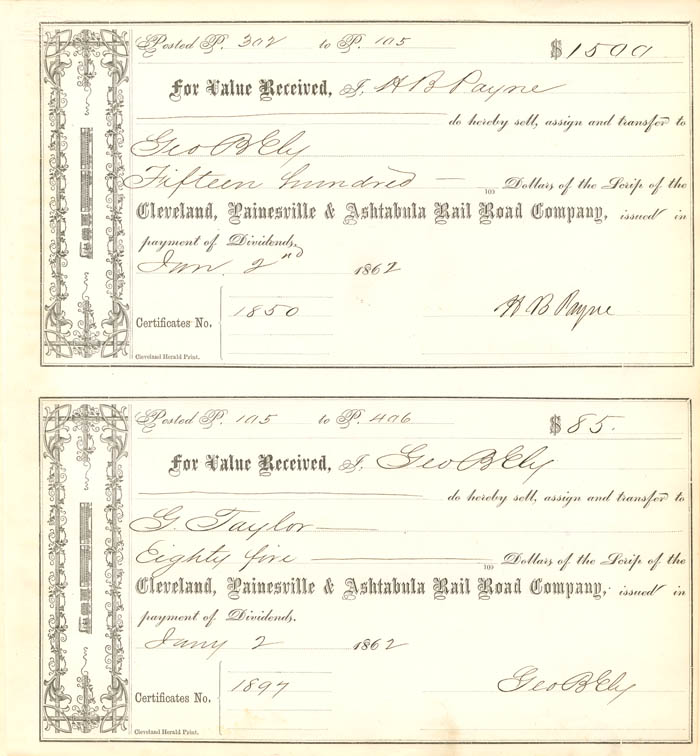 Posted P. 302 to P. 105 $1500
For Value Received, I, H B Payne
do hereby sell, assign and transfer to
Geo B Ely
Fifteen hundred — 100 Dollars of the Scrip of the
Cleveland, Painesville & Ashtabula Rail Road Company, issued in
payment of Dividends.
Jan. 2nd 1862
Certificates No. 1850
H B Payne
Cleveland Herald Print.
Posted P. 105 to P. 406 $85.
For Value Received, I, Geo B Ely
do hereby sell, assign and transfer to
G. Taylor
Eighty five — 100 Dollars of the Scrip of the
Cleveland, Painesville & Ashtabula Rail Road Company, issued in
payment of Dividends.
Jany 2 1862
Certificates No. 1897
Geo B Ely
Cleveland Herald Print.